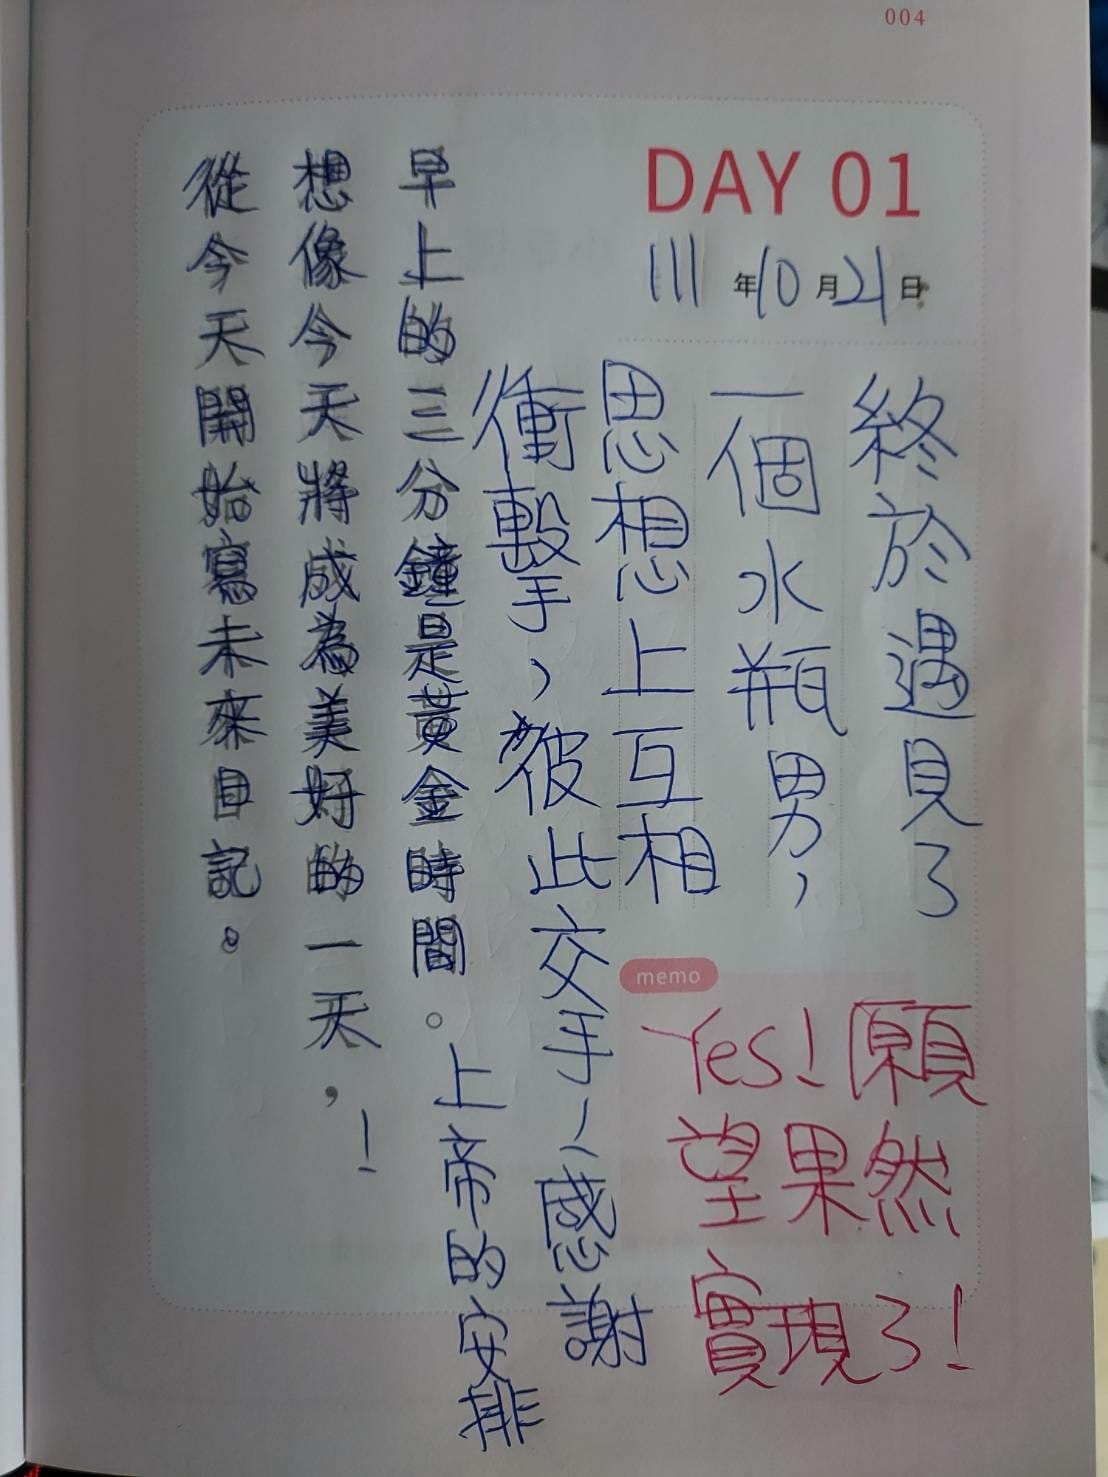 004
DAY 01
111年10月21日
終於遇見了
一個水瓶男，
思想上互相
衝擊，彼此交手、感謝
上帝的安排
早上的三分鐘是黃金時間。
想像今天將成為美好的一天，！
從今天開始寫未來日記。
memo
Yes！願
望果然
實現了！